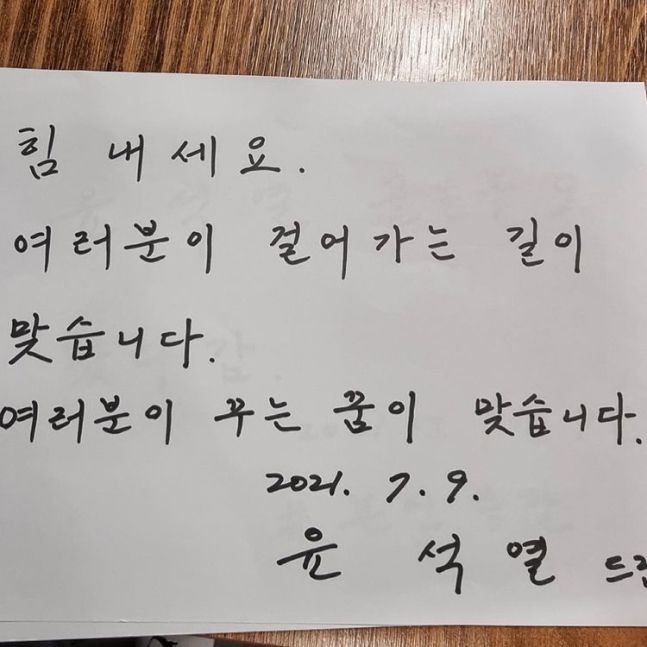 힘 내세요.
여러분이 걸어가는 길이
맞습니다.
여러분이 꾸는 꿈이 맞습니다.
2021. 7. 9.
윤 석 열